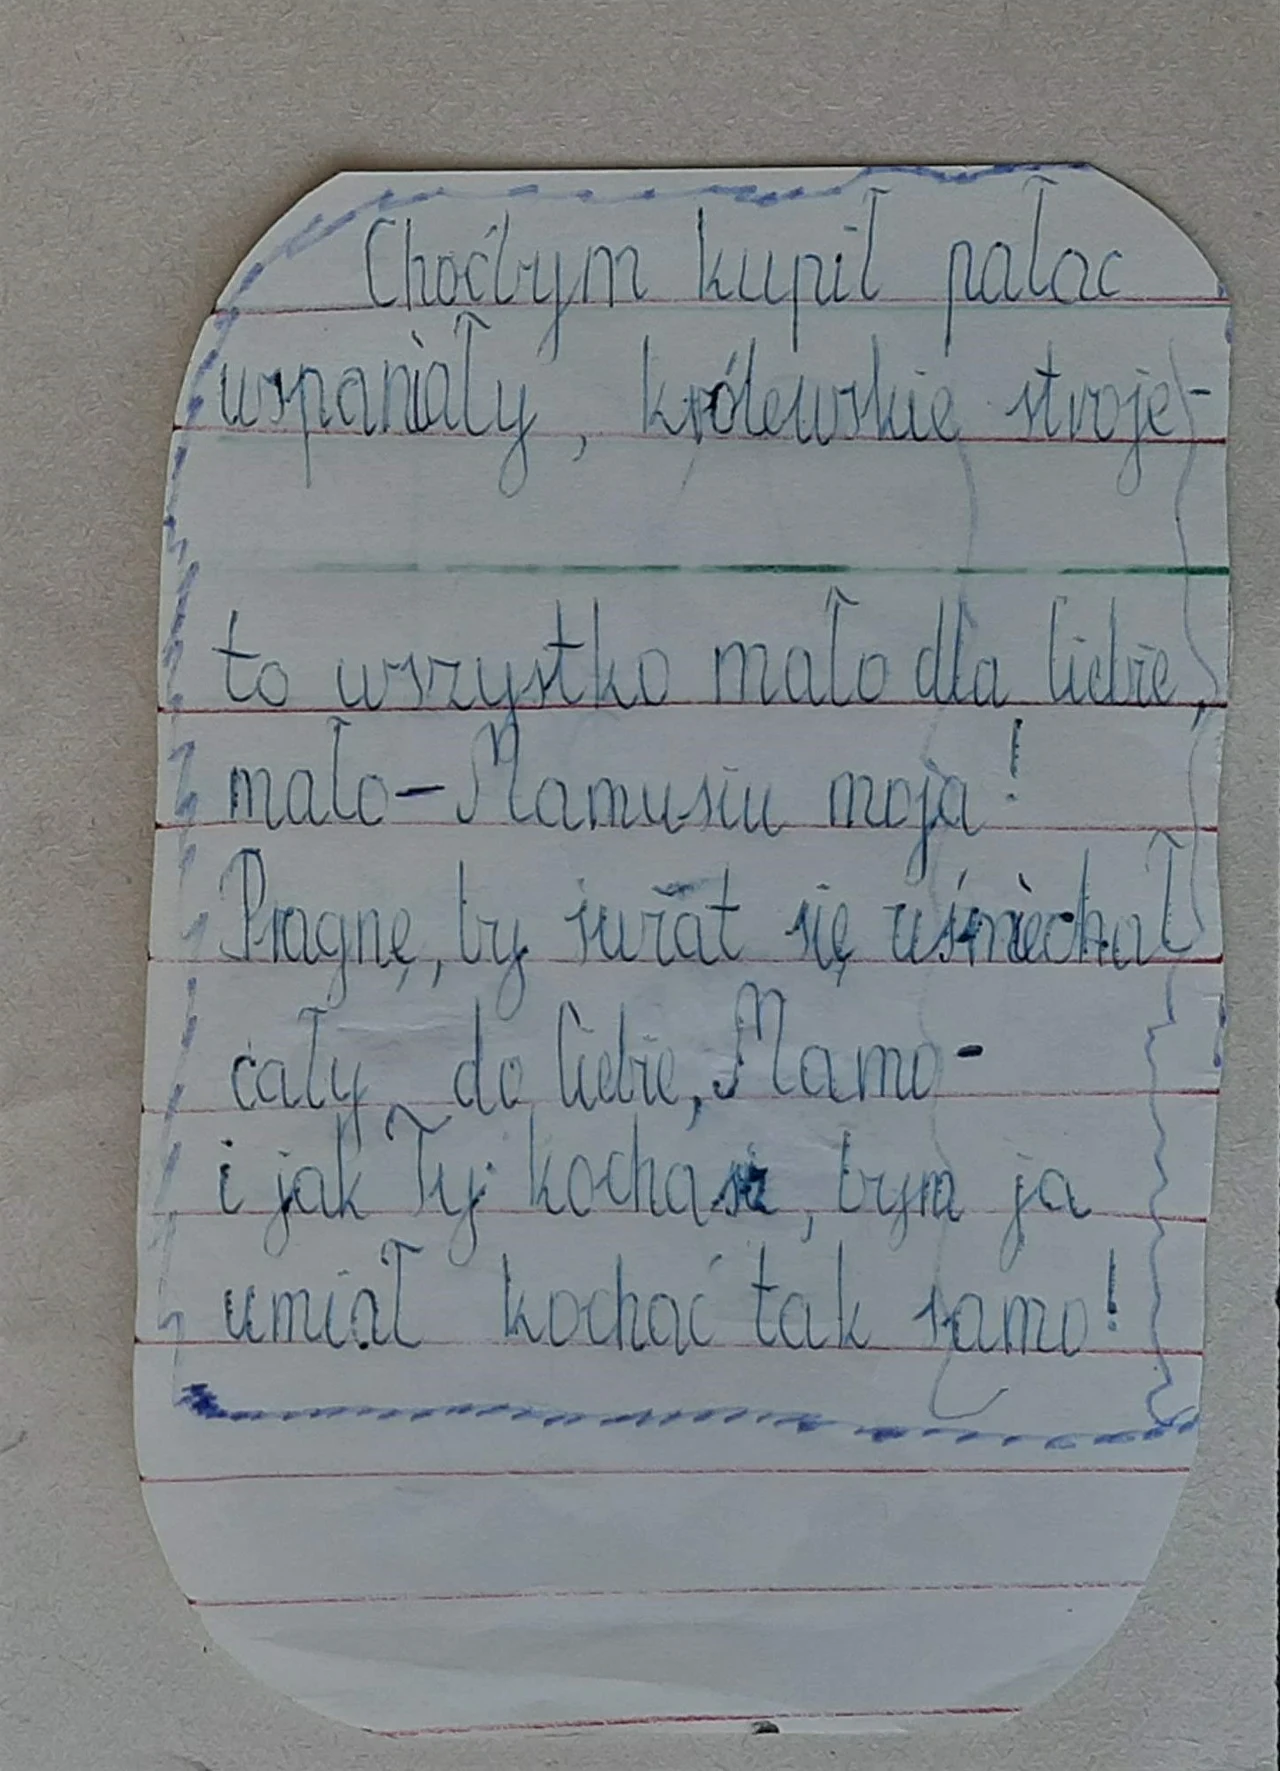 Choćbym kupił pałac
wspaniały, królewskie stroje-
to wszystko mało dla Ciebie,
mało-Mamusiu moja!
Pragnę, by świat się uśmiechał
cały do Ciebie, Mamo-
i jak Ty kochasz, bym ja
umiał kochać tak samo!